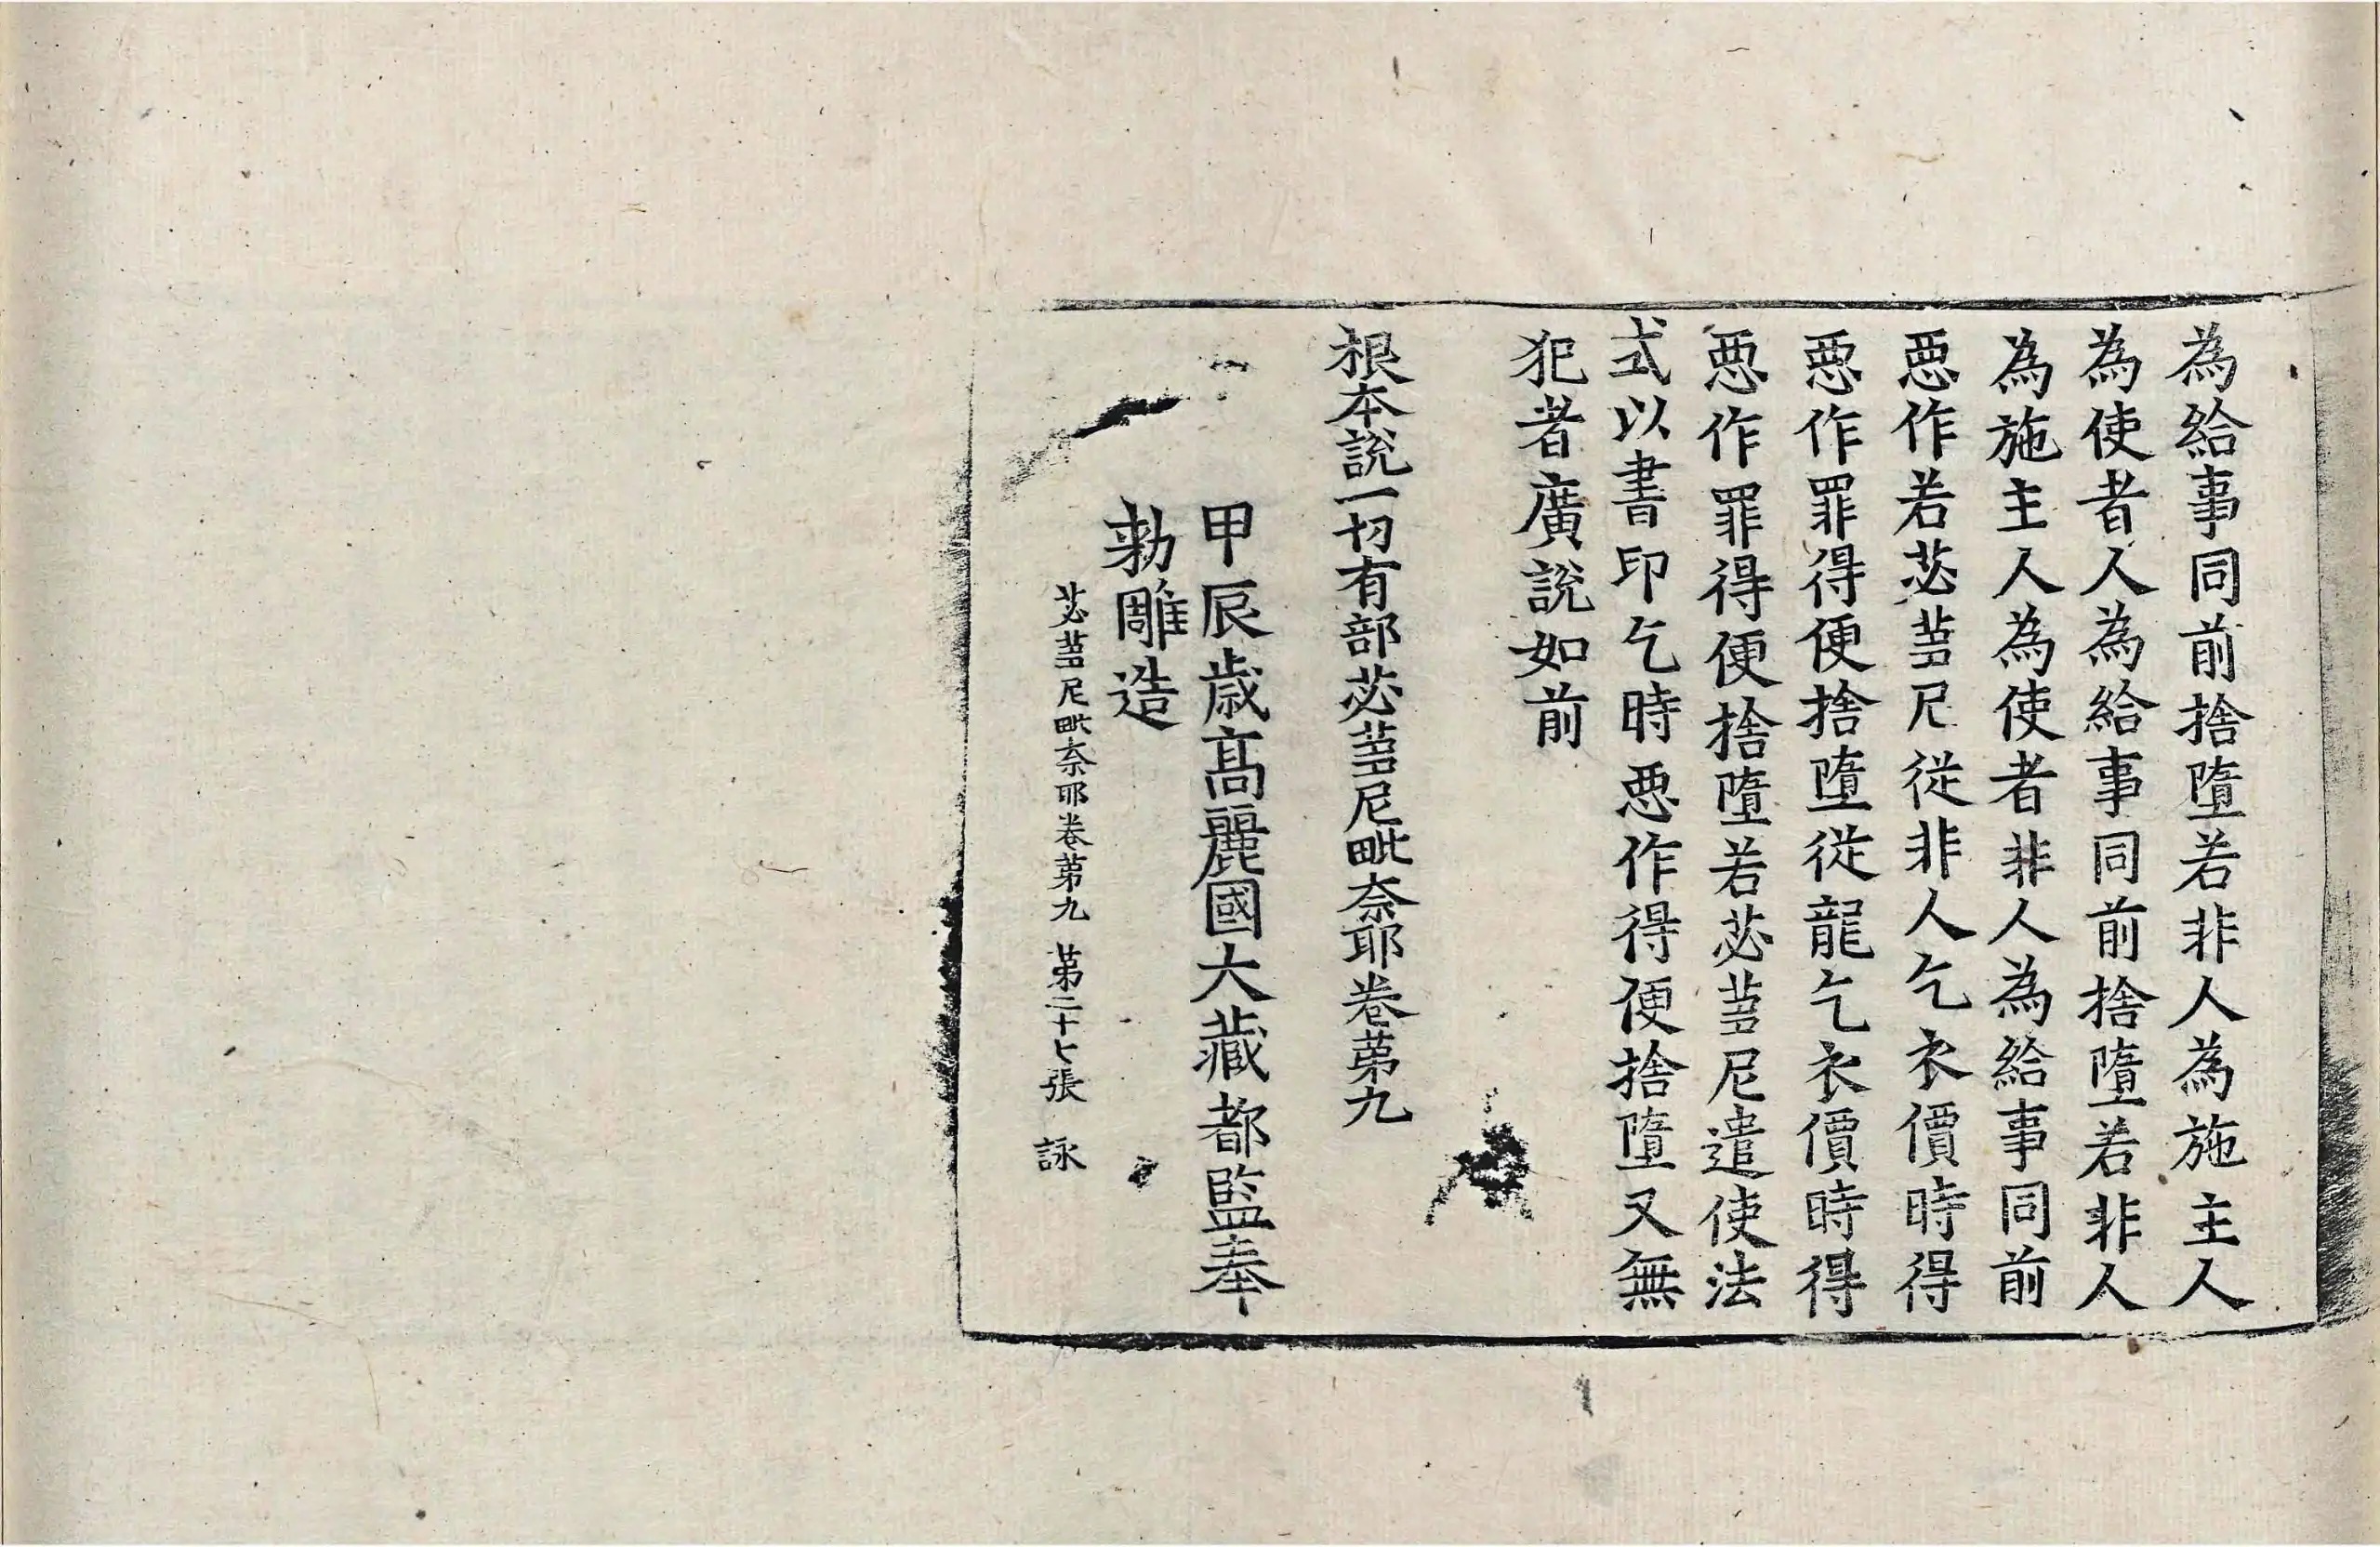 為給事同前捨墮若非人為施主人
為使者人為給事同前捨墮若非人
為施主人為使者非人為給事同前
惡作若苾芻尼從非人乞衣價時得
惡作罪得便捨墮從龍乞衣價時得
惡作罪得便捨墮若苾芻尼遣使法
式以書印乞時惡作得便捨墮又無
犯者廣說如前
根本說一切有部苾芻尼毗奈耶卷第九
甲辰歲高麗國大藏都監奉
勅雕造
苾芻尼毗奈耶卷第九 第二十七張 詠